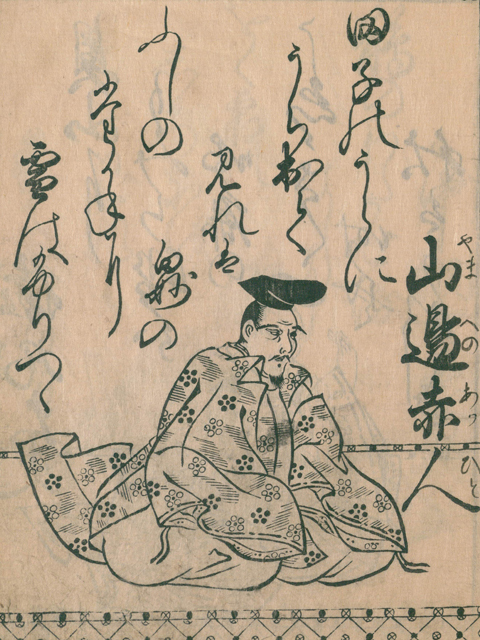 山邉赤人
やまへのあかひと
田子のうらに
うち出て
見れは
白妙の
ふしの
たかねに
雪はふりつゝ